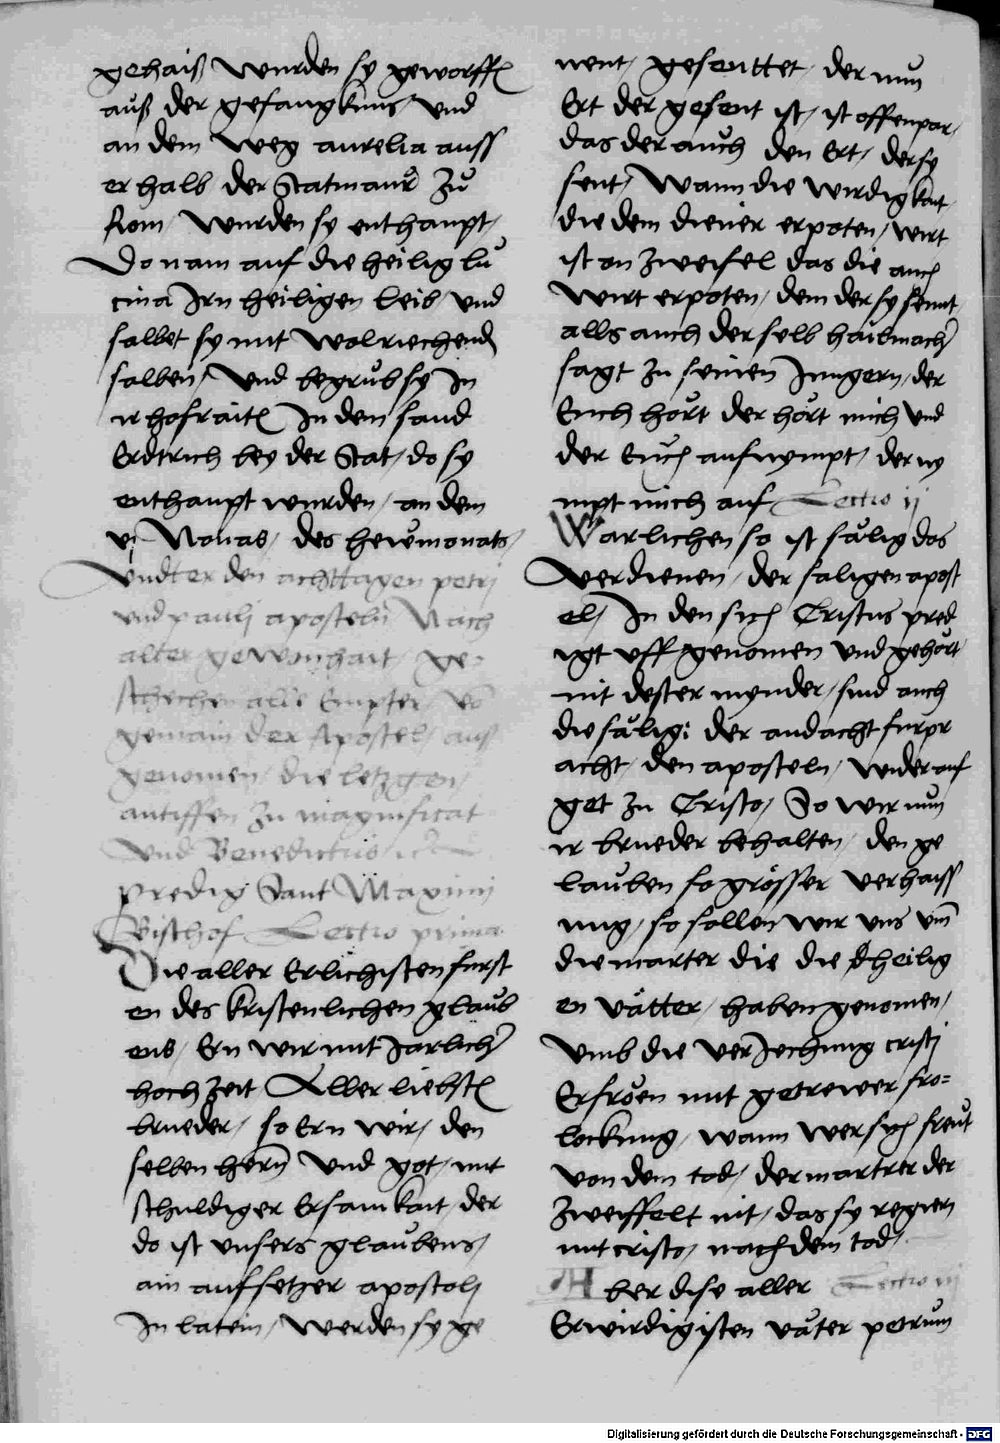 gehaiß wurden sy geworffen
auß der gefangknus und
an dem weg aurelia auss
erhalb der Statmaur zu
Rom / wurden sy enthaupt /
Do nam auf die heilig lu
cina Irn heiligen leib / und
salbet sy mit wolriechenden
salben / und begrub sy In
ir hofraiten In dem sand
Erdtrich bey der Stat / do sy
enthaupt wurden / an dem
vj Nonas / des hewmonats /
Undter den achttagen petri
und pauli aposteln Nach
alter gewonhait / ge-
schechen alle Empter / vo
gemain der Apostel / auß
genomen / die letzgen /
antiffen zu magnificat
und Benedictus /
Predig Sant Maximi
Bischof Lectio prima
Die aller Erlichisten furst
en des kristenlichen glaub
ens / Ern wir mit Jarlicher
hochzeit Aller liebsten
brueder / so Ern wir / den
selben hern und got / mit
schuldiger Ersamkait / der
do ist unsers glaubens /
ain aufsetzer apostoli
In latein / werden sy ge
nent / gesenttet / der nun
Ert der gesent ist / ist offenpar /
das der auch den Ert / der sy
sent / Wann die wirdigkait /
die dem diener erpoten / wirt
ist on zweifel das die auch
wirt erpoten / dem der sy sennt
alls auch der selb hailmacher
sagt zu seinen Jungern / der
Euch hört der hört mich und
der Euch aufnympt / der ny
mpt mich auf Lectio ij
Warlichen so ist sälig das
verdienen / der saligen apost
el / In den sich Cristus pred
igt uff genomen und gehört /
nit dester mynder / sind auch
die sälig: der andacht furpr
acht / den aposteln / wider auf
get zu Cristo / So wir nun
ir brueder behalten / den ge
lauben so grösser verhaiss
ung / so sollen wir uns um
die marter die die heilig
en vätter / haben genomen /
Umb die verJechung cristi
Erfröen mit getrewer fro-
lockung / wann wer sich freut
von dem tod / der martrer der
zweiffelt nit / das sy regiern
mit cristo / nach dem tod /
Aber dise aller Lectio iij
Erwirdigisten väter petrum
Digitalisierung gefördert durch die Deutsche Forschungsgemeinschaft - DFG